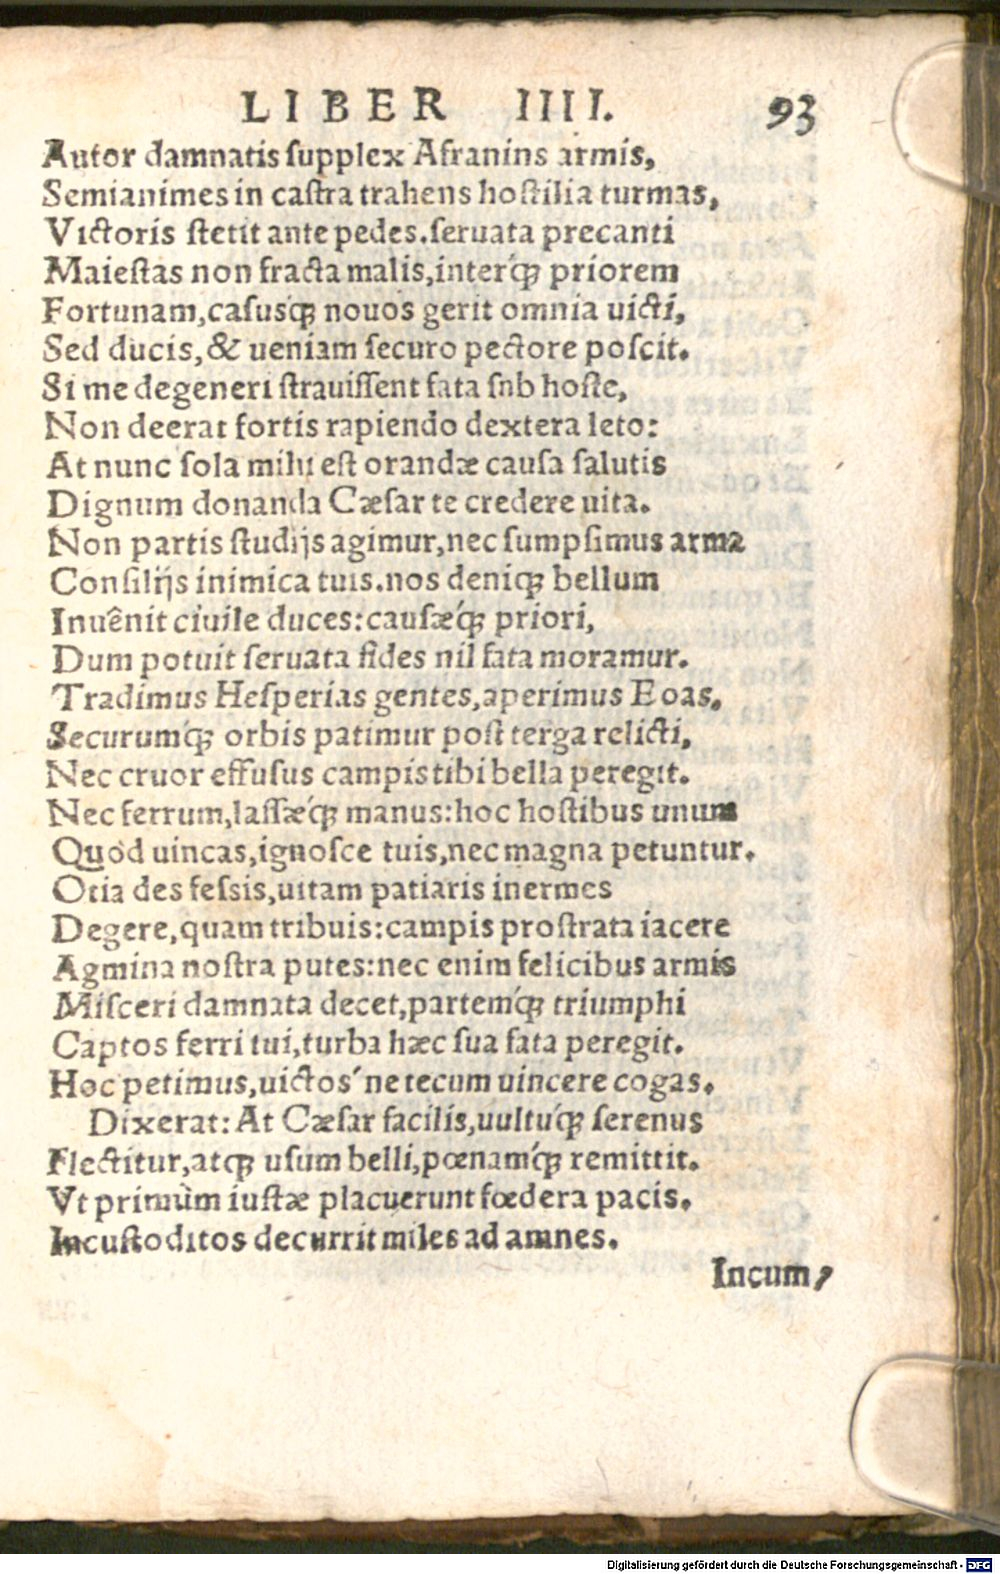 LIBER IIII. 93
Autor damnatis ſupplex Afranins armis,
Semianimes in caſtra trahens hoſtilia turmas,
Victoris ſtetit ante pedes.ſeruata precanti
Maieſtas non fracta malis,interq́ꝫ priorem
Fortunam,caſusq́ꝫ nouos gerit omnia uicti,
Sed ducis,& ueniam ſecuro pectore poſcit.
Si me degeneri ſtrauiſſent fata ſnb hoſte,
Non deerat fortis rapiendo dextera leto:
At nunc ſola mihi eſt orandæ cauſa ſalutis
Dignum donanda Cæſar te credere uita.
Non partis ſtudijs agimur,nec ſumpſimus arma
Conſilijs inimica tuis.nos deniqꝫ bellum
Inuênit ciuile duces:cauſæq́ꝫ priori,
Dum potuit ſeruata fides nil fata moramur.
Tradimus Heſperias gentes,aperimus Eoas,
Securumq́ꝫ orbis patimur poſt terga relicti,
Nec cruor effuſus campis tibi bella peregit.
Nec ferrum,laſſæq́ꝫ manus:hoc hoſtibus unum
Quòd uincas,ignoſce tuis,nec magna petuntur.
Otia des feſsis,uitam patiaris inermes
Degere,quam tribuis:campis proſtrata iacere
Agmina noſtra putes:nec enim felicibus armis
Miſceri damnata decet,partemq́ꝫ triumphi
Captos ferri tui,turba hæc ſua fata peregit.
Hoc petimus,uictos´ne tecum uincere cogas.
Dixerat: At Cæſar facilis,uultuq́ꝫ ſerenus
Flectitur,atqꝫ uſum belli,pœnamq́ꝫ remittit.
Vt primùm iuſtæ placuerunt fœdera pacis,
Incuſtoditos decurrit miles ad amnes.
Incum,
Digitalisierung gefördert durch die Deutsche Forschungsgemeinschaft - DFG